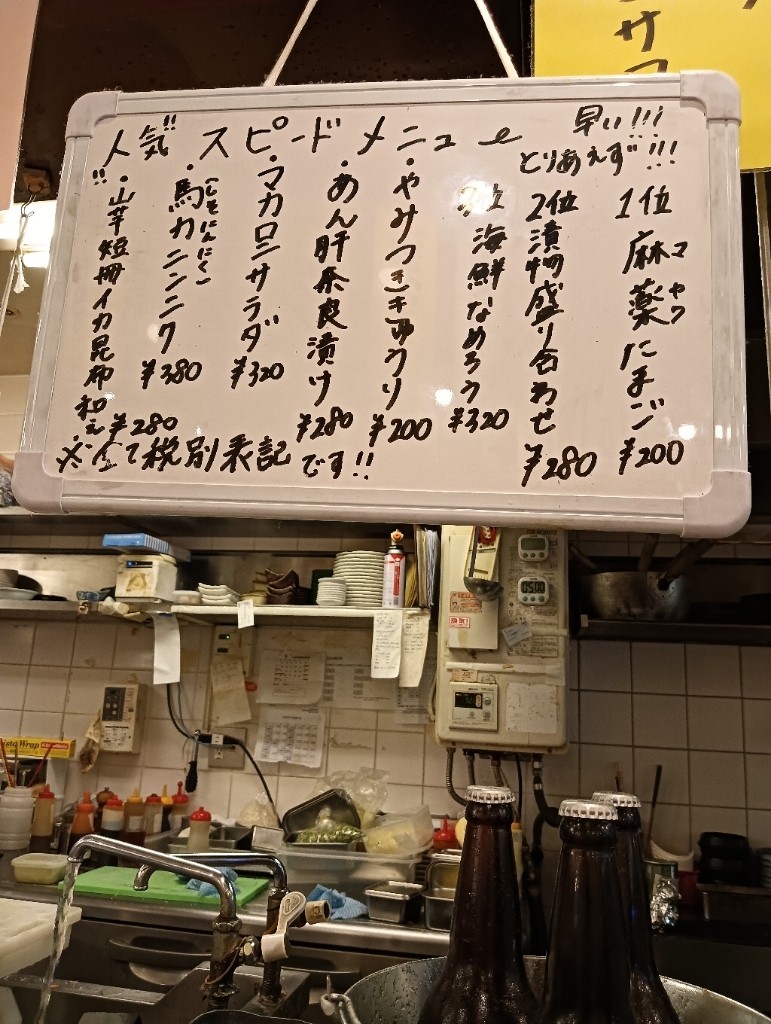 人気!! スピードメニュー
早い!!!
とりあえず!!!
1位 麻薬にまご ¥200
マヤク
2位 漬物盛り合わせ ¥280
3位 海鮮なめろう ¥320
・やみつききゅうり ¥200
・あん肝奈良漬け ¥280
・マカロニサラダ ¥320
・馬力ニンニク ¥380
(しそにんにく)
!!・山芋短冊イカ昆布和え ¥280
※全て税別表記です!!
サ